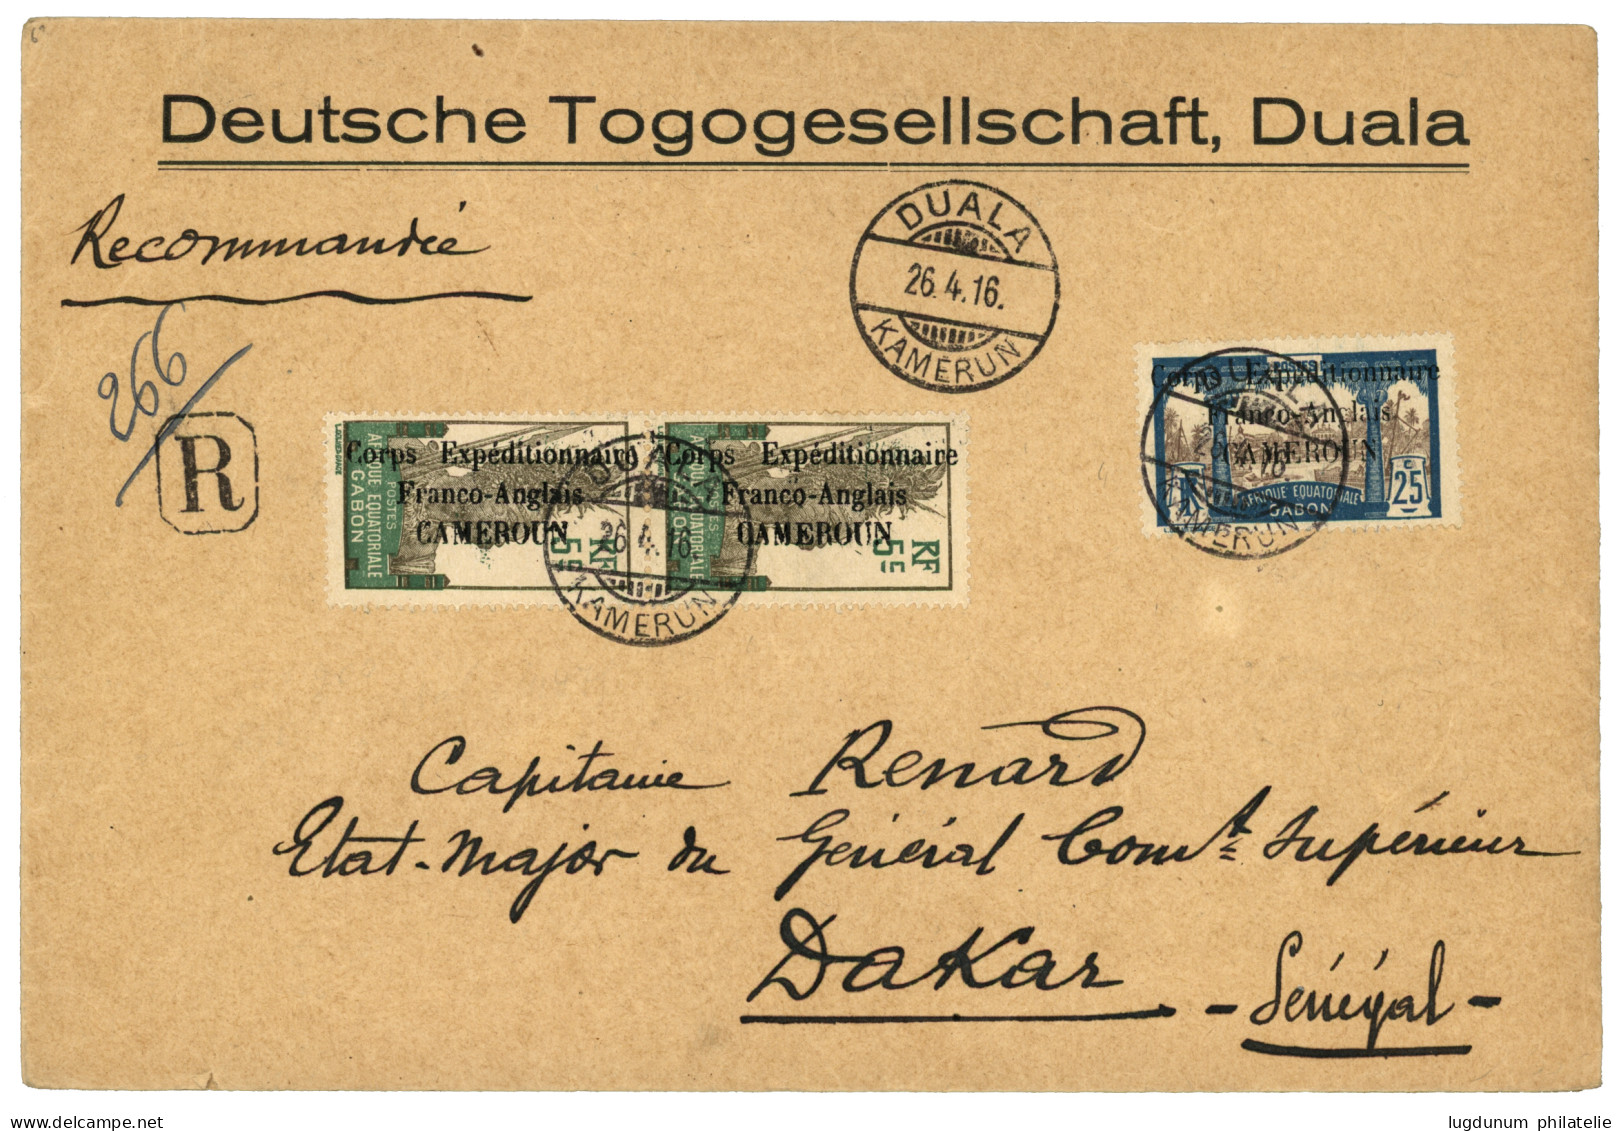 Deutsche Togogesellschaft, Duala
Recommandée
266
R
DUALA
26.4.16.
KAMERUN
Corps Expéditionnaire
Franco-Anglais
CAMEROUN
POSTES
AFRIQUE EQUATORIALE
GABON
RF
5c
Corps Expéditionnaire
Franco-Anglais
CAMEROUN
RF
5c
DUALA
26.4.16.
KAMERUN
Corps Expéditionnaire
Franco-Anglais
CAMEROUN
AFRIQUE EQUATORIALE
GABON
25
KAMERUN
Capitaine Renard
Etat-Major du Général Comt Supérieur
Dakar
- Sénégal -
lugdunum philatelie